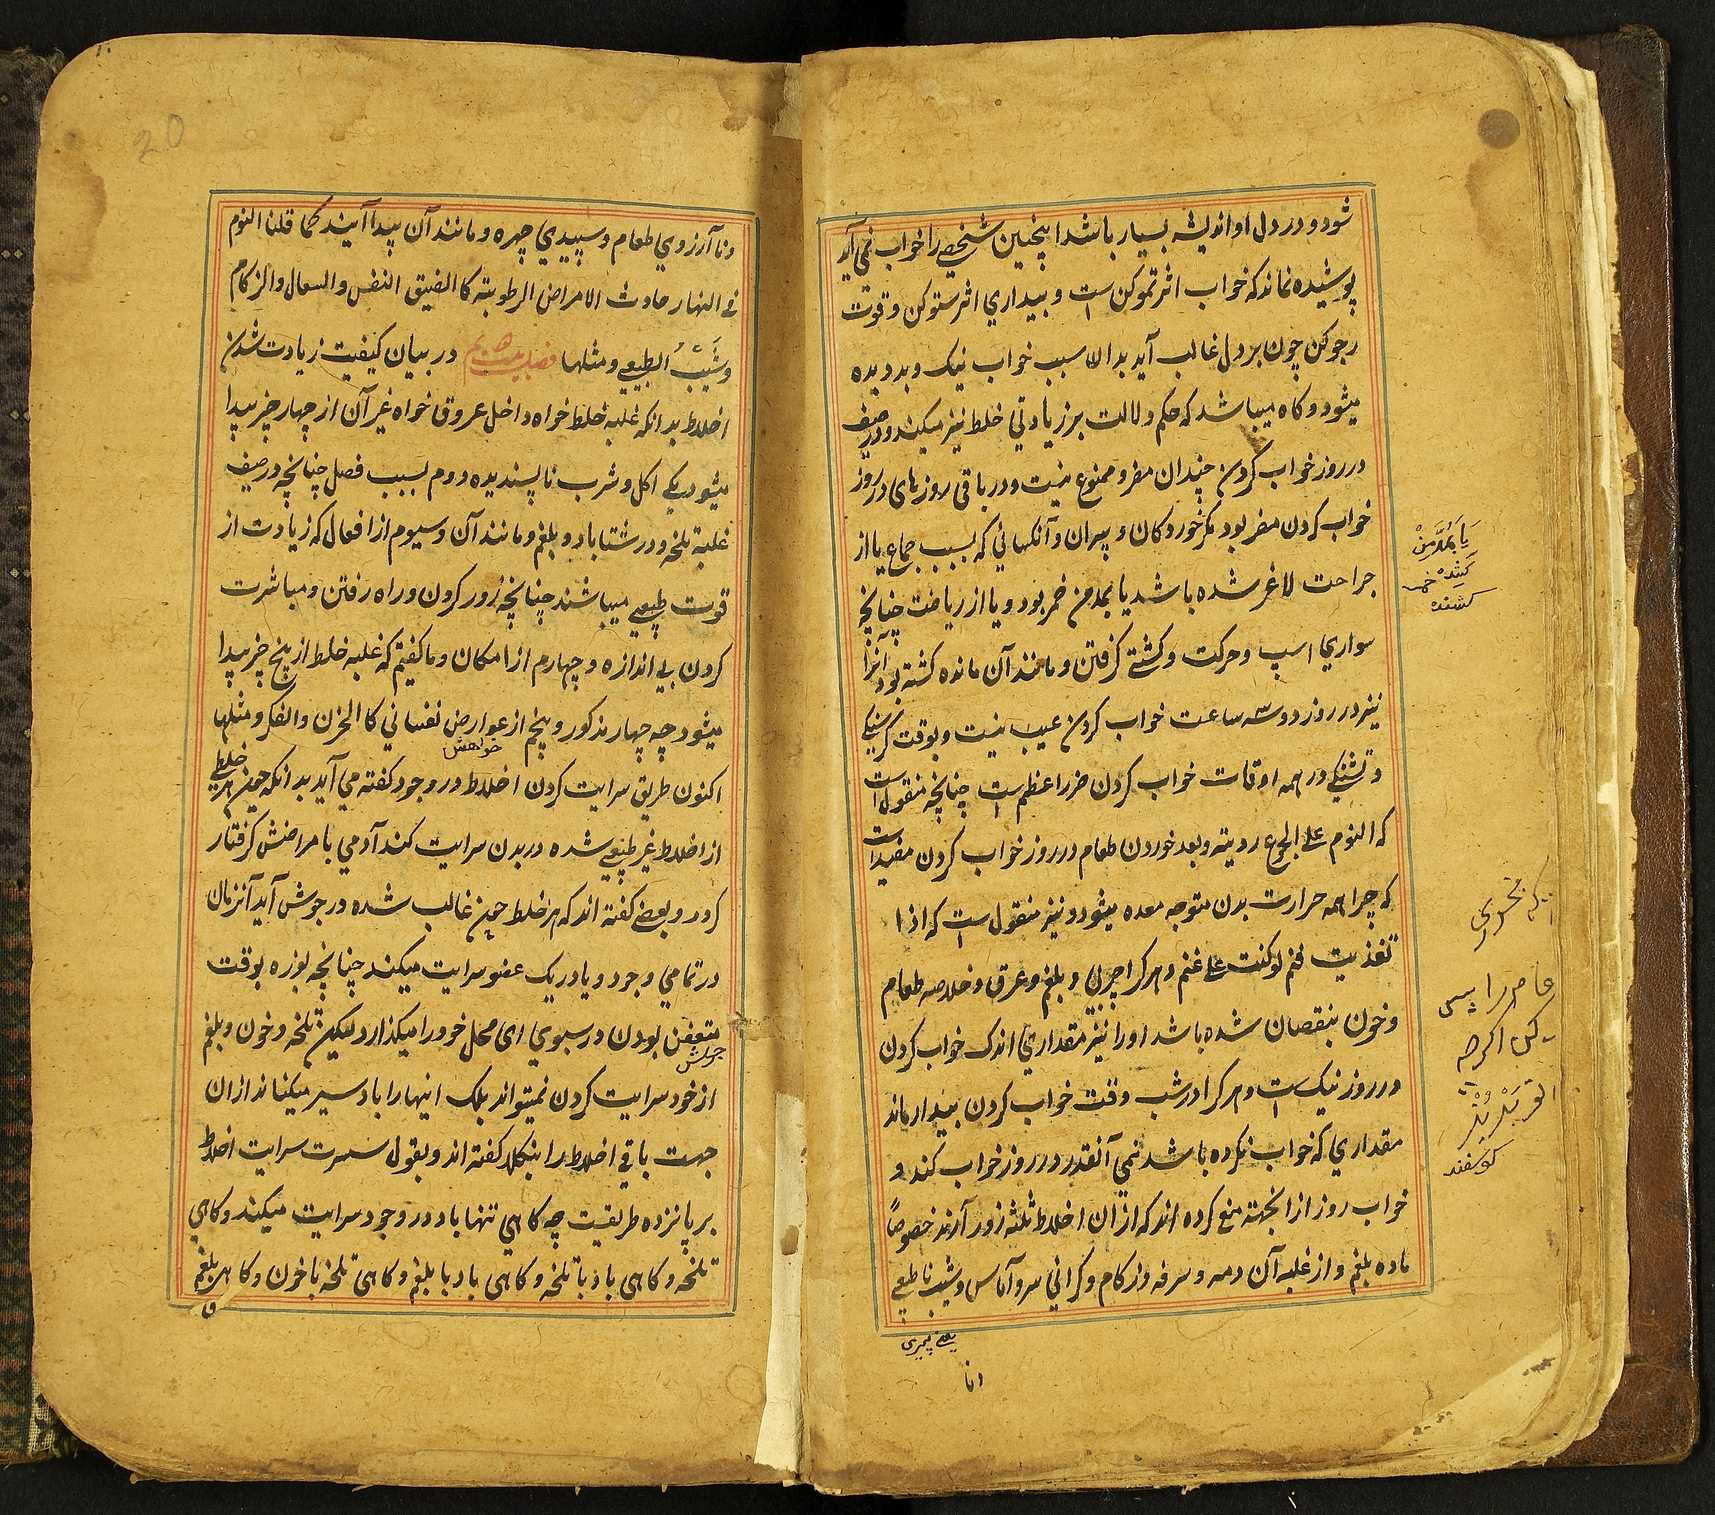 شود و در دل او اندیشه بسیار باشد اینچنین شخصی را خواب نمی آید
پوشیده نماند که خواب اثر تموکن است و بیداری اثر ستوکن و قوت
رجوکن چون بر دل غالب آید بدالا سبب خواب نیک و بد دیده
میشود و کاه میباشد که حکم دلالت بر زیادتی خلط نیز میکند و در صیف
در روز خواب کردن چندان مضر و ممنوع نیست و در باقی روزهای در روز
خواب کردن مضر بود مکر خوردکان و پیران و آنکهانی که بسبب جماع یا از
جراحت لاغر شده باشد یا بمدمن خمر بود و یا از ریاضت چنانچه
سواری اسپ و حرکت و کشتی کرفتن و مانند آن مانده کشته بود آنرا
نیز در روز دو سه ساعت خواب کردن عیب نیست و بوقت کرسنکی
و تشنکی در همه اوقات خواب کردن ضرر اعظم است چنانچه منقول است
که النوم علی الجوع ردیته و بعد خوردن طعام در روز خواب کردن مفید است
که چرا همه حرارت بدن متوجه معده میشود و نیز منقول است که اذا
تغذیت فنم لو کنت علی غنم و هر کرا چربی و بلغم و عرق و خلاصه طعام
و خون بنقصان شده باشد او را نیز مقداری اندک خواب کردن
در روز نیک است و هر کرا در شب وقت خواب کردن بیدار ماند
مقداری که خواب نکرده باشد نمی آنقدر در روز خواب کند و
خواب روز از انجهته منع کرده اند که از آن اخلاط ثلثه زور آرند خصوصاً
ماده بلغم و از غلبه آن دمه و سرفه و زکام و کرانی سر و آماس و شیب نا طبعی
یعنے پیری
انا
یا بمدمن
کشنده
و نا آرزوی طعام و سپیدی چهره و مانند آن پیدا آیند کما قلنا النوم
فی النهار حادث الامراض الرطوبته کا الضیق النفس والسعال والزکام
وشیب الطبیعی و مثلها در بیان کیفیت زیادت شدن
اخلاط بدانکه غلبه خلط خواه داخل عروق خواه غیر آن از چهار چیز پیدا
میشود یکی اکل و شرب نا پسندیده دوم بسبب فصل چنانچه در صیف
غلبه تلخه و در شتا باد و بلغم و مانند آن و سیوم از افعال که زیادت از
قوت طبیعی میباشند چنانچه زور کردن و راه رفتن و مباشرت
کردن بی اندازه و چهارم از امکان و ما کفتیم که غلبه خلط از پنج چیز پیدا
میشود چه چهار مذکور و پنجم از عوارض نفسانی کا الحزن والفکر و مثلها
خواهش
اکنون طریق سرایت کردن اخلاط در وجود کفته می آید بدانکه چون هر خلطی
از اخلاط غیر طبیعی شده در بدن سرایت کند آدمی با مراضش کرفتار
کردد و بعضی کفته اند که هر خلط چون غالب شده در جوش آید آنزمان
در تمامی وجود و یا در یک عضو سرایت میکند چنانچه بوزه بوقت
متعفن بودن در سبوی ای محل خود را میکذارد لیکن تلخه و خون و بلغم
از خود سرایت کردن نمیتواند بلک اینها را باد سیر میکناند ازان
جهت باقی اخلاط را پنکلا کفته اند و بقول سسرت سرایت اخلاط
بر پانزده طریقست چه کاهی تنها باد در وجود سرایت میکند و کاهی
تلخه و کاهی باد با تلخه و کاهی باد با بلغم و کاهی تلخه با خون و کاهی بلغم
20